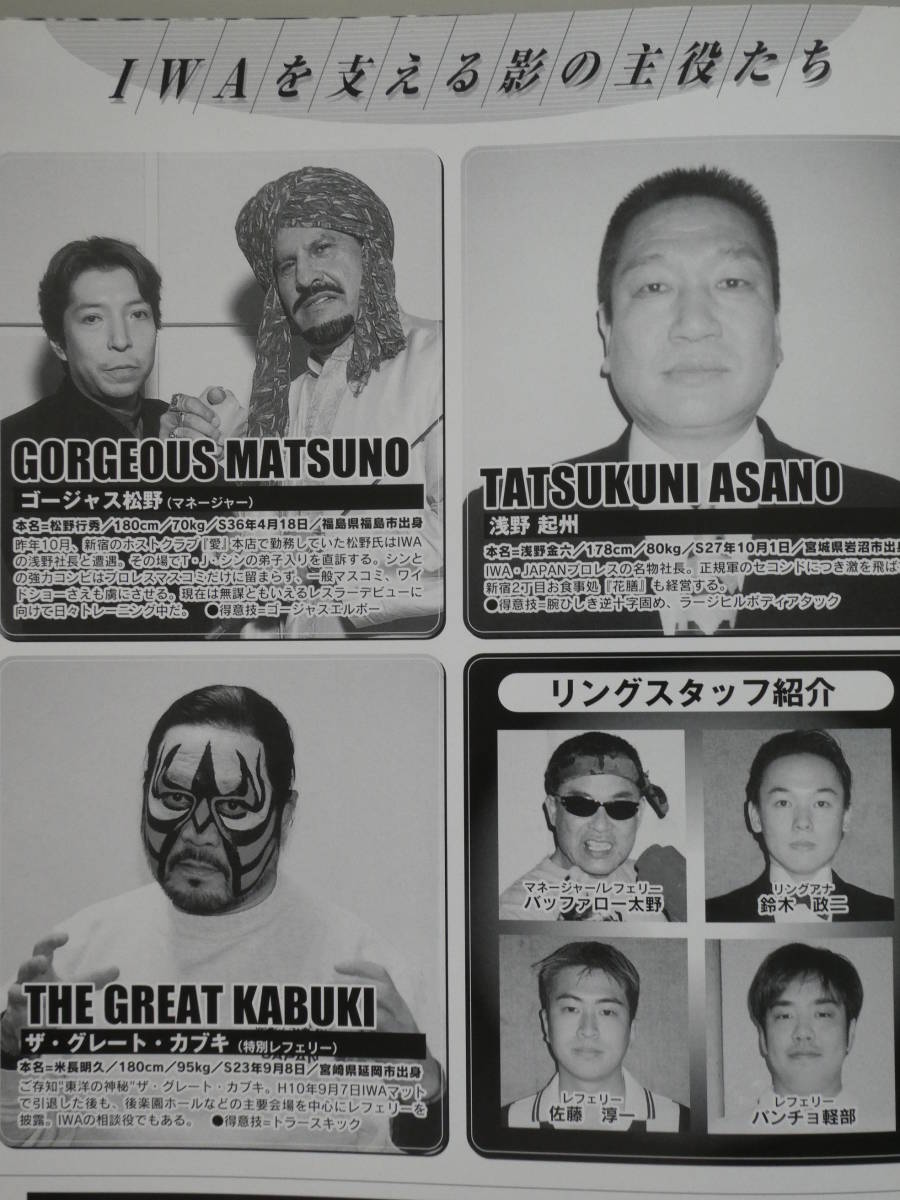 IWAを支える影の主役たち
GORGEOUS MATSUNO
ゴージャス松野(マネージャー)
本名=松野行秀/180cm/70kg/S36年4月18日/福島県福島市出身
昨年10月、新宿のホストクラブ『愛』本店で勤務していた松野氏はIWA
の浅野社長と遭遇。その場でT・J・シンの弟子入りを直訴する。シンと
の強力コンビはプロレスマスコミだけに留まらず、一般マスコミ、ワイ
ドショーさえも虜にさせる。現在は無謀ともいえるレスラーデビューに
向けて日々トレーニング中だ。 ●得意技=ゴージャスエルボー
TATSUKUNI ASANO
浅野 起州
本名=浅野金六/178cm/80kg/S27年10月1日/宮城県岩沼市出身
IWA・JAPANプロレスの名物社長。正規軍のセコンドにつき激を飛ばす
新宿2丁目お食事処『花膳』も経営する。
●得意技=腕ひしぎ逆十字固め、ラージヒルボディアタック
THE GREAT KABUKI
ザ・グレート・カブキ(特別レフェリー)
本名=米良明久/180cm/95kg/S23年9月8日/宮崎県延岡市出身
ご存知“東洋の神秘”ザ・グレート・カブキ。H10年9月7日IWAマット
で引退した後も、後楽園ホールなどの主要会場を中心にレフェリーを
披露。IWAの相談役でもある。 ●得意技=トラースキック
リングスタッフ紹介
マネージャー/レフェリー
バッファロー太野
リングアナ
鈴木 政二
レフェリー
佐藤 淳一
レフェリー
バンチョ軽部